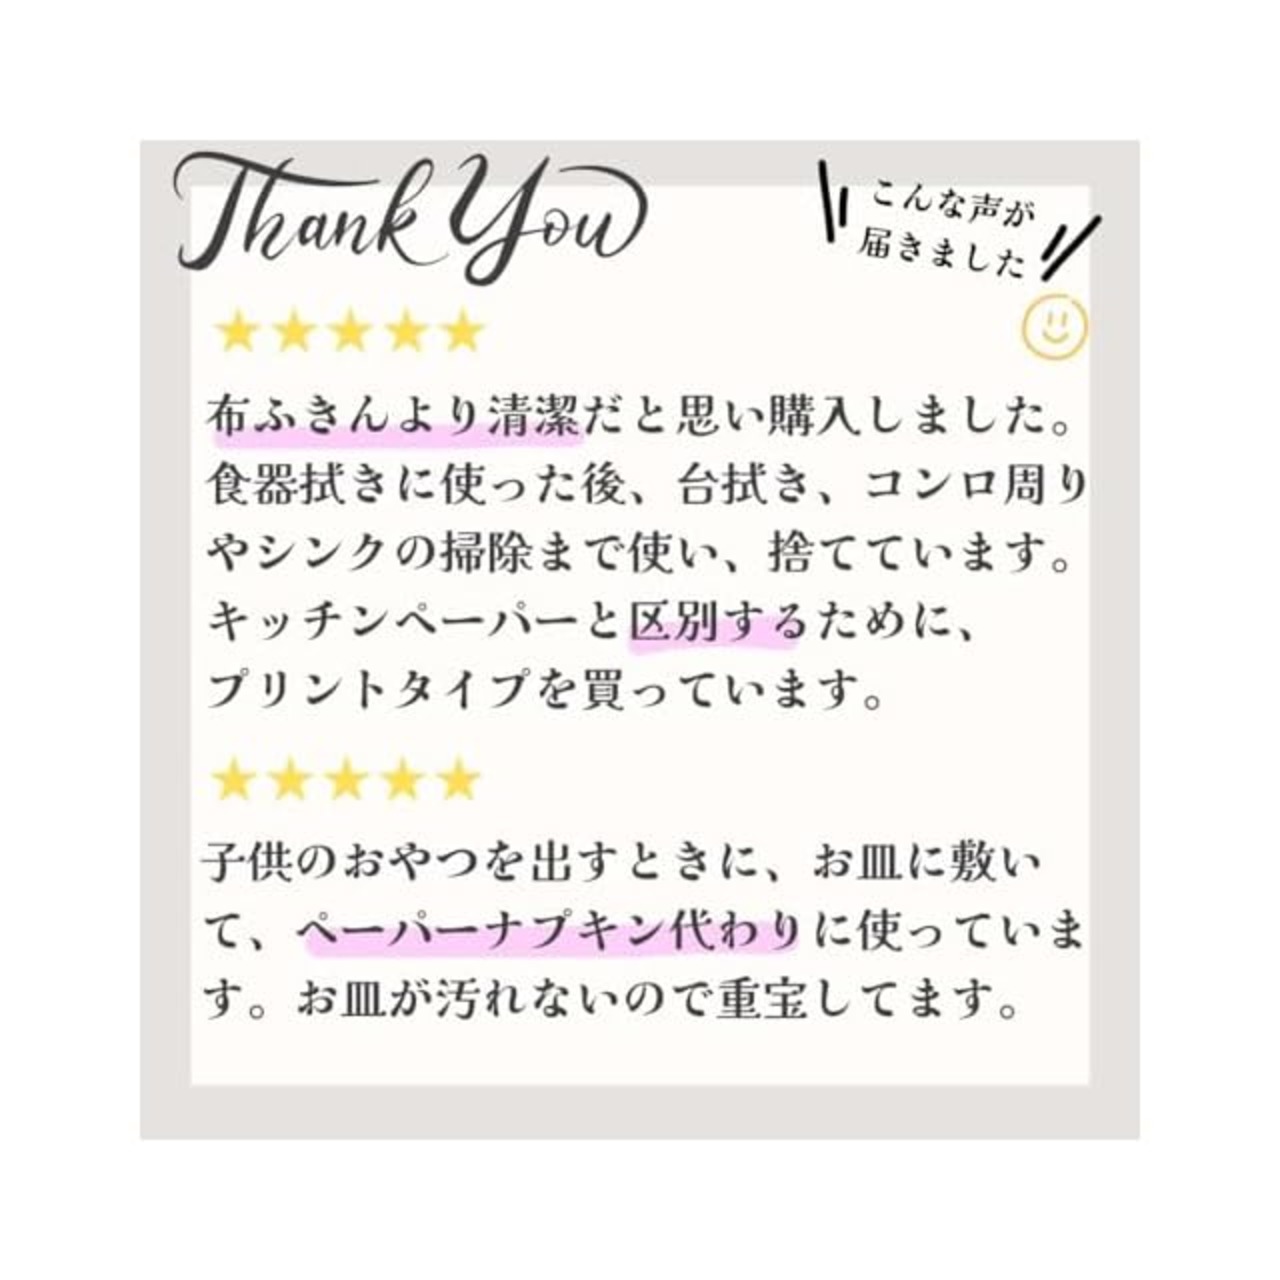 Thank You
こんな声が
届きました
★★★★★
布ふきんより清潔だと思い購入しました。
食器拭きに使った後、台拭き、コンロ周り
やシンクの掃除まで使い、捨てています。
キッチンペーパーと区別するために、
プリントタイプを買っています。
★★★★★
子供のおやつを出すときに、お皿に敷い
て、ペーパーナプキン代わりに使っていま
す。お皿が汚れないので重宝してます。